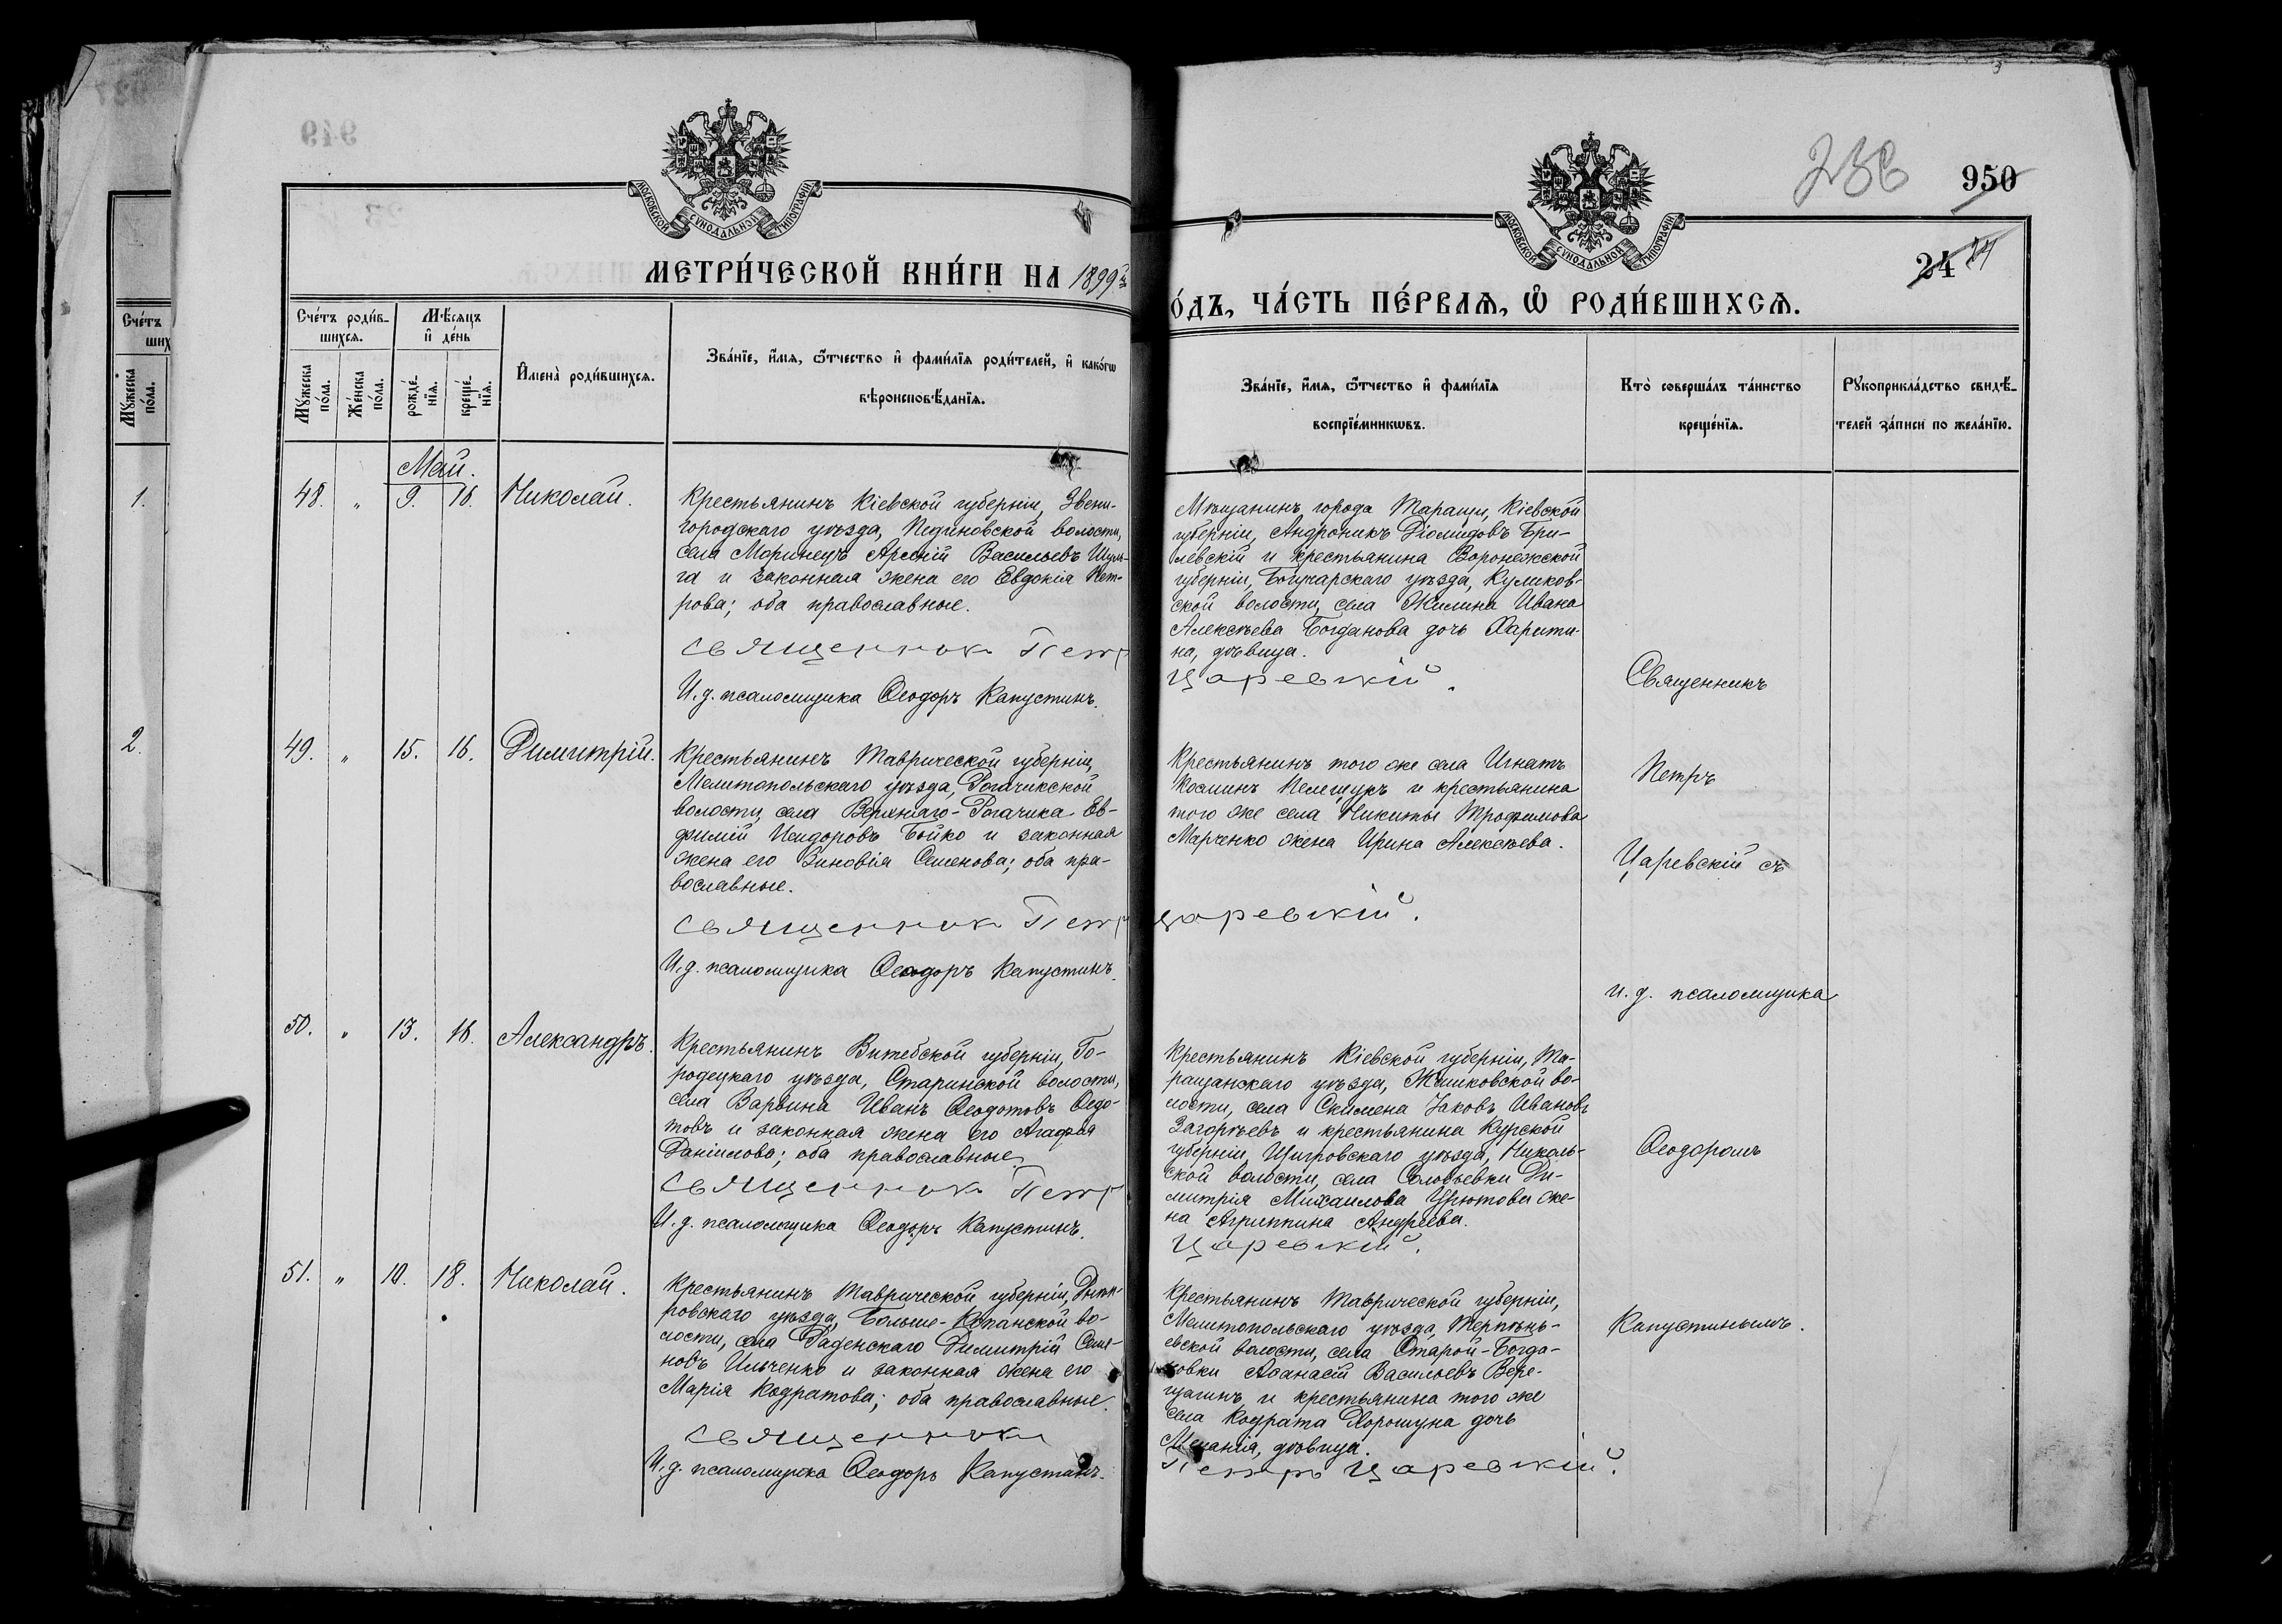 949
950
236
24 24
МОСКОВСКОЙ СѴНОДАЛЬНОЙ ТИПОГРАФІИ
МОСКОВСКОЙ СѴНОДАЛЬНОЙ ТИПОГРАФІИ
МЕТРИ́ЧЕСКОЙ КНИ́ГИ НА 1899й
О́ДЪ, ЧА́СТЬ ПЕ́РВАѦ, Ѡ҆ РОДИ́ВШИХСѦ.
Сче́тъ
ших
Мꙋ́жеска по́ла.
1.
2.
Сче́тъ роди́в-
шихсѧ.
Мꙋ́жеска по́ла.
Же́нска по́ла.
Мѣ́сѧцъ
и҆ де́нь
рожде́-
нїѧ.
креще́-
нїѧ.
И҆мена̀ роди́вшихсѧ.
Зва́нїе, и҆́мѧ, ѻ҆́тчество и҆ фами́лїѧ роди́телей, и҆ како́гѡ
вѣроисповѣ́данїѧ.
Зва́нїе, и҆́мѧ, ѻ҆́тчество и҆ фами́лїѧ
воспрїе́мникѡвъ.
Кто̀ соверша́лъ та́инство
креще́нїѧ.
Рꙋкоприкла́дство свидѣ́-
телей за́писи по жела́нїю.
Май.
48. „ 9. 16. Николай.
Крестьянинъ Кіевской губерніи, Звени-
городскаго уѣзда, Пединовской волости,
села Моринецъ Арсеній Васильевъ Шуль-
га и законная жена его Евдокія Пет-
рова; оба православные.
Священник Петр
И. д. псаломщика Ѳеодоръ Капустинъ.
Мѣщанинъ города Таращи, Кіевской
губерніи, Андроникъ Діомидовъ Бри-
левскій и крестьянина Воронежской
губерніи, Богучарскаго уѣзда, Куликов-
ской волости, села Жилина Ивана
Алексѣева Богданова дочь Харити-
на, дѣвица.
Царевскій.
49. „ 15. 16. Димитрій.
Крестьянинъ Таврической губерніи,
Мелитопольскаго уѣзда, Рогачикской
волости, села Верхняго-Рогачика Ев-
фимій Исидоровъ Бойко и законная
жена его Зиновія Семенова; оба пра-
вославные.
Священник Петр
И. д. псаломщика Ѳеодоръ Капустинъ.
Крестьянинъ того же села Игнатъ
Косминъ Пелещукъ и крестьянина
того же села Никиты Трофимова
Марченко жена Ирина Алексѣева.
Царевскій.
50. „ 13. 16. Александръ.
Крестьянинъ Витебской губерніи, Го-
родецкаго уѣзда, Старинской волости,
села Варвина Иванъ Ѳеодотовъ Ѳедо-
товъ и законная жена его Агафія
Даніилова; оба православные.
Священник Петр
И. д. псаломщика Ѳеодоръ Капустинъ.
Крестьянинъ Кіевской губерніи, Та-
ращанскаго уѣзда, Жашковской во-
лости, села Скимена Іаковъ Ивановъ
Загорѣевъ и крестьянина Курской
губерніи, Щигровскаго уѣзда, Николь-
ской волости, села Соловьевки Ди-
митрія Михаилова же-
на Агриппина Андреева.
Царевскій.
51. „ 10. 18. Николай.
Крестьянинъ Таврической губерніи, Днѣп-
ровскаго уѣзда, Больше-Копанской во-
лости, села Раденскаго Димитрій Семе-
новъ Ильченко и законная жена его
Марія Кодратова; оба православные.
Священник
И. д. псаломщика Ѳеодоръ Капустинъ.
Крестьянинъ Таврической губерніи,
Мелитопольскаго уѣзда, Терпѣнь-
евской волости, села Старой-Богда-
новки Аѳанасій Васильевъ Вере-
щагинъ и крестьянина того же
села Кодрата Хорошуна дочь
Меланія, дѣвица.
Петръ Царевскій.
Священникъ
Петръ
Царевскій съ
и. д. псаломщика
Ѳеодоромъ
Капустинымъ.